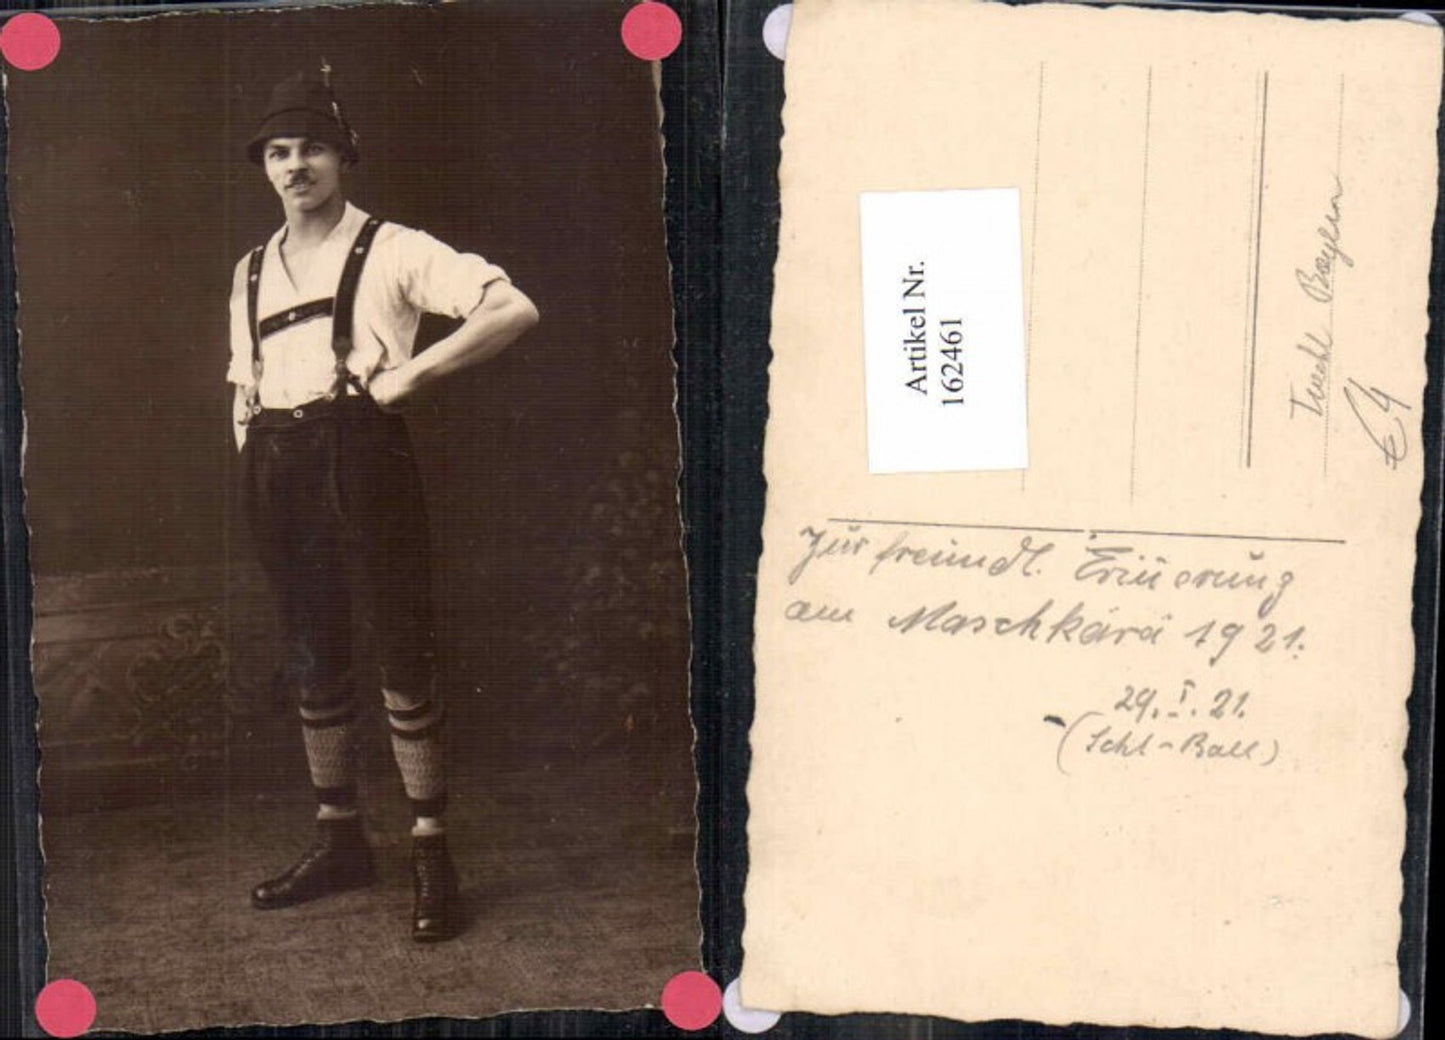 Artikel Nr.
162461
Tracht Bayern
€4
Zur freundl. Erinerung
am Maschkära 1921.
29. I. 21.
(Schl-Ball)